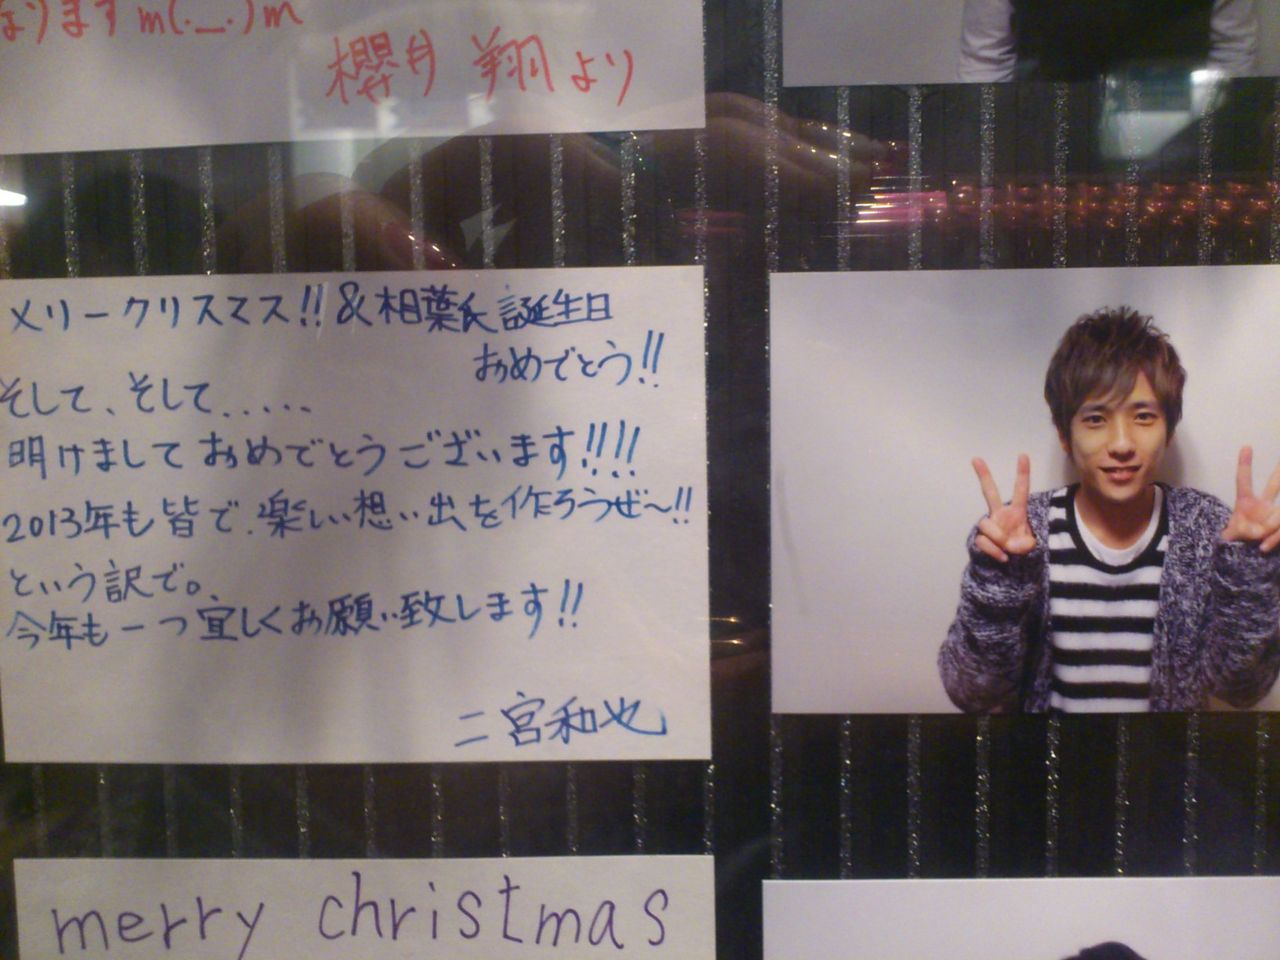 なります m(._.)m
櫻井 翔より
メリークリスマス!! &相葉氏誕生日
おめでとう!!
そして、そして.....
明けましておめでとうございます!!!!
2013年も皆で、楽しい想い出を作ろうぜ～!!
という訳で。
今年も一つ宜しくお願い致します!!
二宮和也
merry christmas